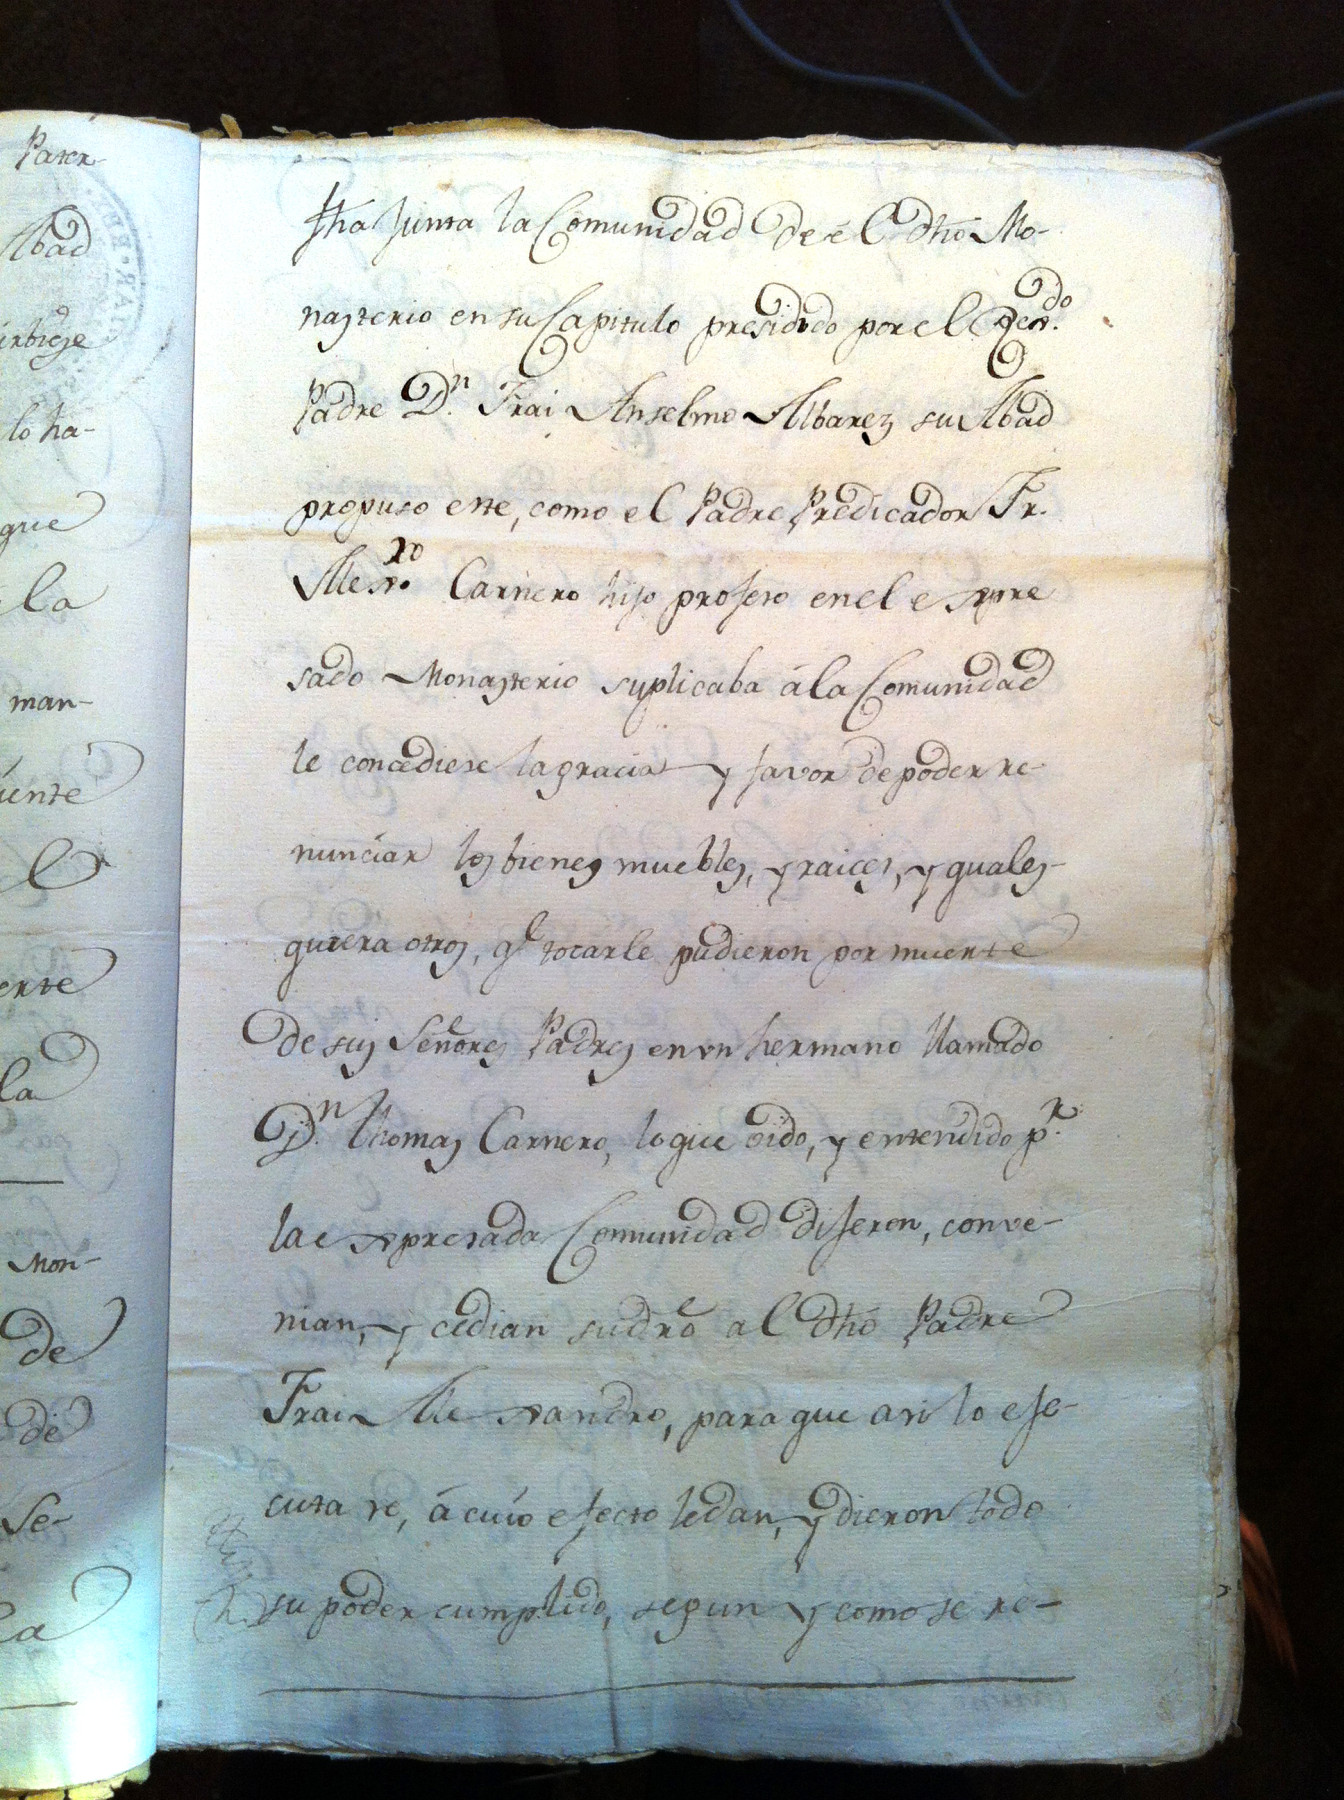 Pater-
Abad
la
lo ha-
que
la
man-
la
Mon-
de
de
Se-
fha Junta la Comunidad de él dho Mo-
nasterio en su Capitulo presidido por el Rev.do
Padre D.n Frai Anselmo Albarez su Abad
propuso este, como el Padre Predicador Fr.
Alex.ro Carnero hijo profeso en el expre
sado Monasterio suplicaba á la Comunidad
le concediese la gracia y favor de poder re-
nunciar los bienes muebles, y raices, y quales-
quiera otros, q.e tocarle pudieron por muerte
de sus Señores Padres en vn hermano llamado
D.n Thomas Carnero, lo que oido, y entendido p.r
la expresada Comunidad dijeron, conve-
nian, y cedian su dro al dho Padre
Frai Alexandro, para que asi lo eje-
cutase, á cuio efecto le dan, y dieron todo
su poder cumplido, segun y como se re-